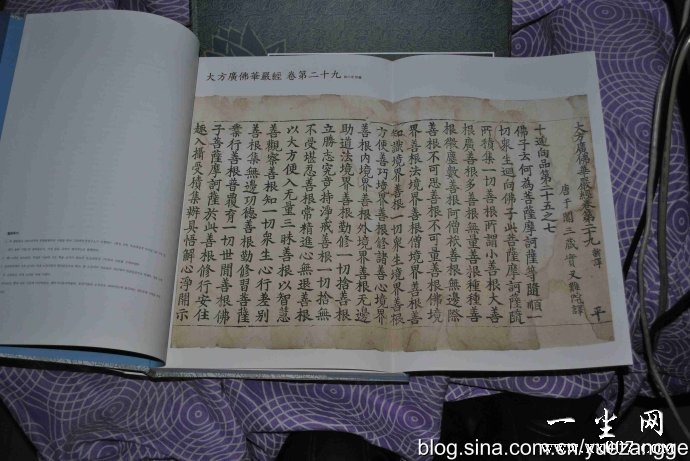 大方廣佛華嚴經 卷第二十九
大方廣佛華嚴經卷第二十九 新譯 平
唐于闐三藏實叉難陀譯
十迴向品第二十五之七
佛子云何為菩薩摩訶薩等隨順一
切衆生迴向佛子此菩薩摩訶薩隨
所積集一切善根所謂小善根大善
根廣善根多善根無量善根種種善
根微塵數善根阿僧祇善根無邊際
善根不可思善根不可量善根佛境
界善根法境界善根僧境界善根善
知識境界善根一切衆生境界善根
方便善巧境界善根修諸善心境界
善根內境界善根外境界善根无邊
助道法境界善根勤修一切捨善根
立勝志究竟持淨戒善根一切捨無
不受堪忍善根常精進心無退善根
以大方便入无量三昧善根以智慧
善觀察善根知一切衆生心行差別
善根集無邊功德善根勤修習菩薩
業行善根普覆育一切世間善根佛
子菩薩摩訶薩於此善根修行安住
趣入攝受積集辦具悟解心淨開示
一尘网
blog.sina.com.cn/yuezangge